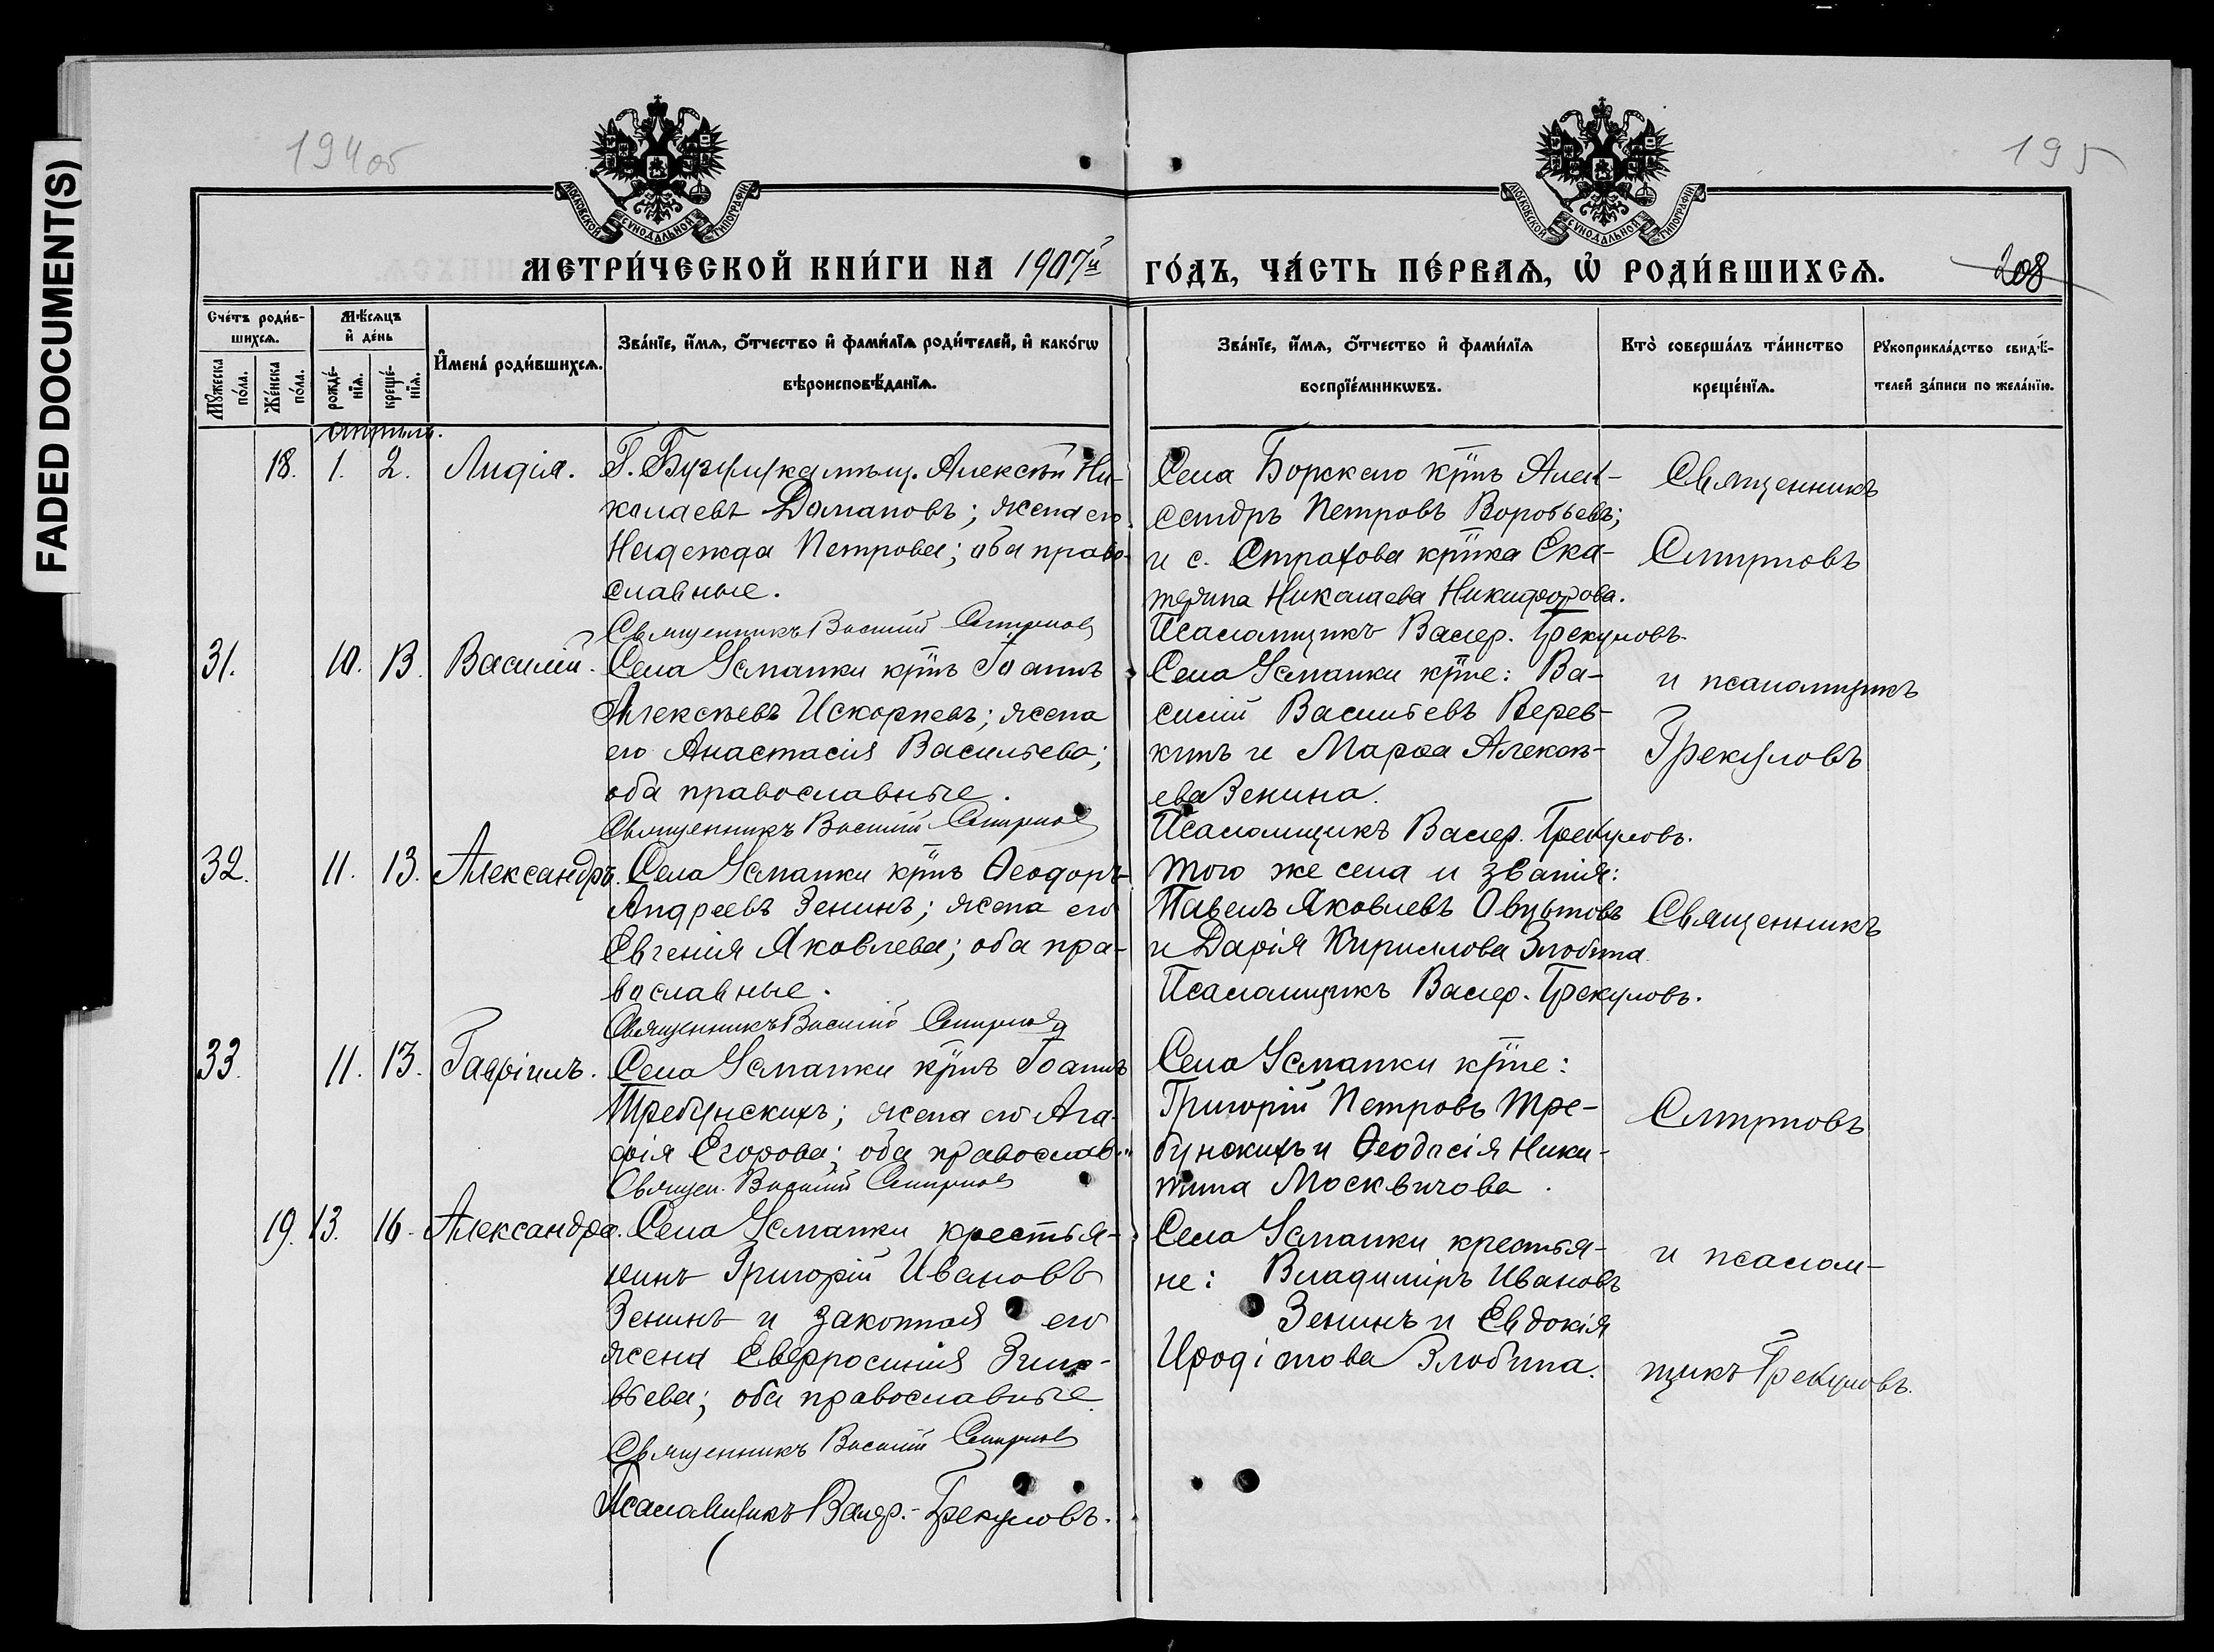 FADED DOCUMENT(S)
194об
195
МОСКОВСКОЙ СУНОДАЛЬНОЙ ТИПОГРАФІИ
МОСКОВСКОЙ СУНОДАЛЬНОЙ ТИПОГРАФІИ
МЕТРИ́ЧЕСКОЙ КНИ́ГИ НА 1907й ГО́ДЪ, ЧА́СТЬ ПЕ́РВАѦ, Ѡ҆ РОДИ́ВШИХСѦ.
208
Сче́тъ роди́в-
шихсѧ.
Мѣ́сѧцъ
и҆ де́нь
Мꙋ́жеска по́ла.
Же́нска по́ла.
рожде́-нїѧ.
креще́-нїѧ.
И҆мена̀ роди́вшихсѧ.
Зва́нїе, и҆́мѧ, ѻ҆́тчество и҆ фами́лїѧ роди́телей, и҆ како́гѡ
вѣроисповѣ́данїѧ.
Зва́нїе, и҆́мѧ, ѻ҆́тчество и҆ фами́лїѧ
воспрїе́мникѡвъ.
Кто̀ соверша́лъ та́инство
креще́нїѧ.
Рꙋкоприкла́дство свидѣ́-
телей за́писи по жела́нїю.
апрѣль.
18. 1. 2. Лидія. Г. Бузулука мѣщ. Алексѣй Ни-
колаевъ Домановъ; жена его
Надежда Петрова; оба право-
славные.
Священникъ Василій Смирновъ
Села Борскаго кр̃нъ Алек-
сандръ Петровъ Воробьевъ;
и с. Страхова кр̃нка Ека-
терина Николаева Никифорова.
Псаломщикъ Валер. Грекуловъ.
Священникъ
Смирновъ
31. 10. 13. Василій. Села Усманки кр̃нъ Іоаннъ
Алексѣевъ Искорневъ; жена
его Анастасія Васильева;
оба православные.
Священникъ Василій Смирновъ
Села Усманки кр̃не: Ва-
силій Васильевъ Верев-
кинъ и Марѳа Алексѣ-
ева Зенина.
Псаломщикъ Валер. Грекуловъ.
и псаломщикъ
Грекуловъ
32. 11. 13. Александръ. Села Усманки кр̃нъ Ѳеодоръ
Андреевъ Зенинъ; жена его
Евгенія Яковлева; оба пра-
вославные.
Священникъ Василій Смирновъ
того же села и званія:
Павелъ Яковлевъ Овцыновъ
и Дарія Кириллова Злобина
Псаломщикъ Валер. Грекуловъ.
Священникъ
33. 11. 13. Гавріилъ. Села Усманки кр̃нъ Іоаннъ
Требунскихъ; жена его Ага-
фія Егорова; оба православ.
Священ. Василій Смирновъ
Села Усманки кр̃не:
Григорій Петровъ Тре-
бунскихъ и Ѳеодосія Ники-
тина Москвичова.
Смирновъ
19. 13. 16. Александра. Села Усманки крестья-
нинъ Григорій Ивановъ
Зенинъ и законная его
жена Евфросинія Зино-
вьева; оба православные
Священникъ Василій Смирновъ
Псаломщикъ Валер. Грекуловъ.
Села Усманки крестья-
не: Владиміръ Ивановъ
Зенинъ и Евдокія
Иродіонова Злобина.
и псалом-
щикъ Грекуловъ.